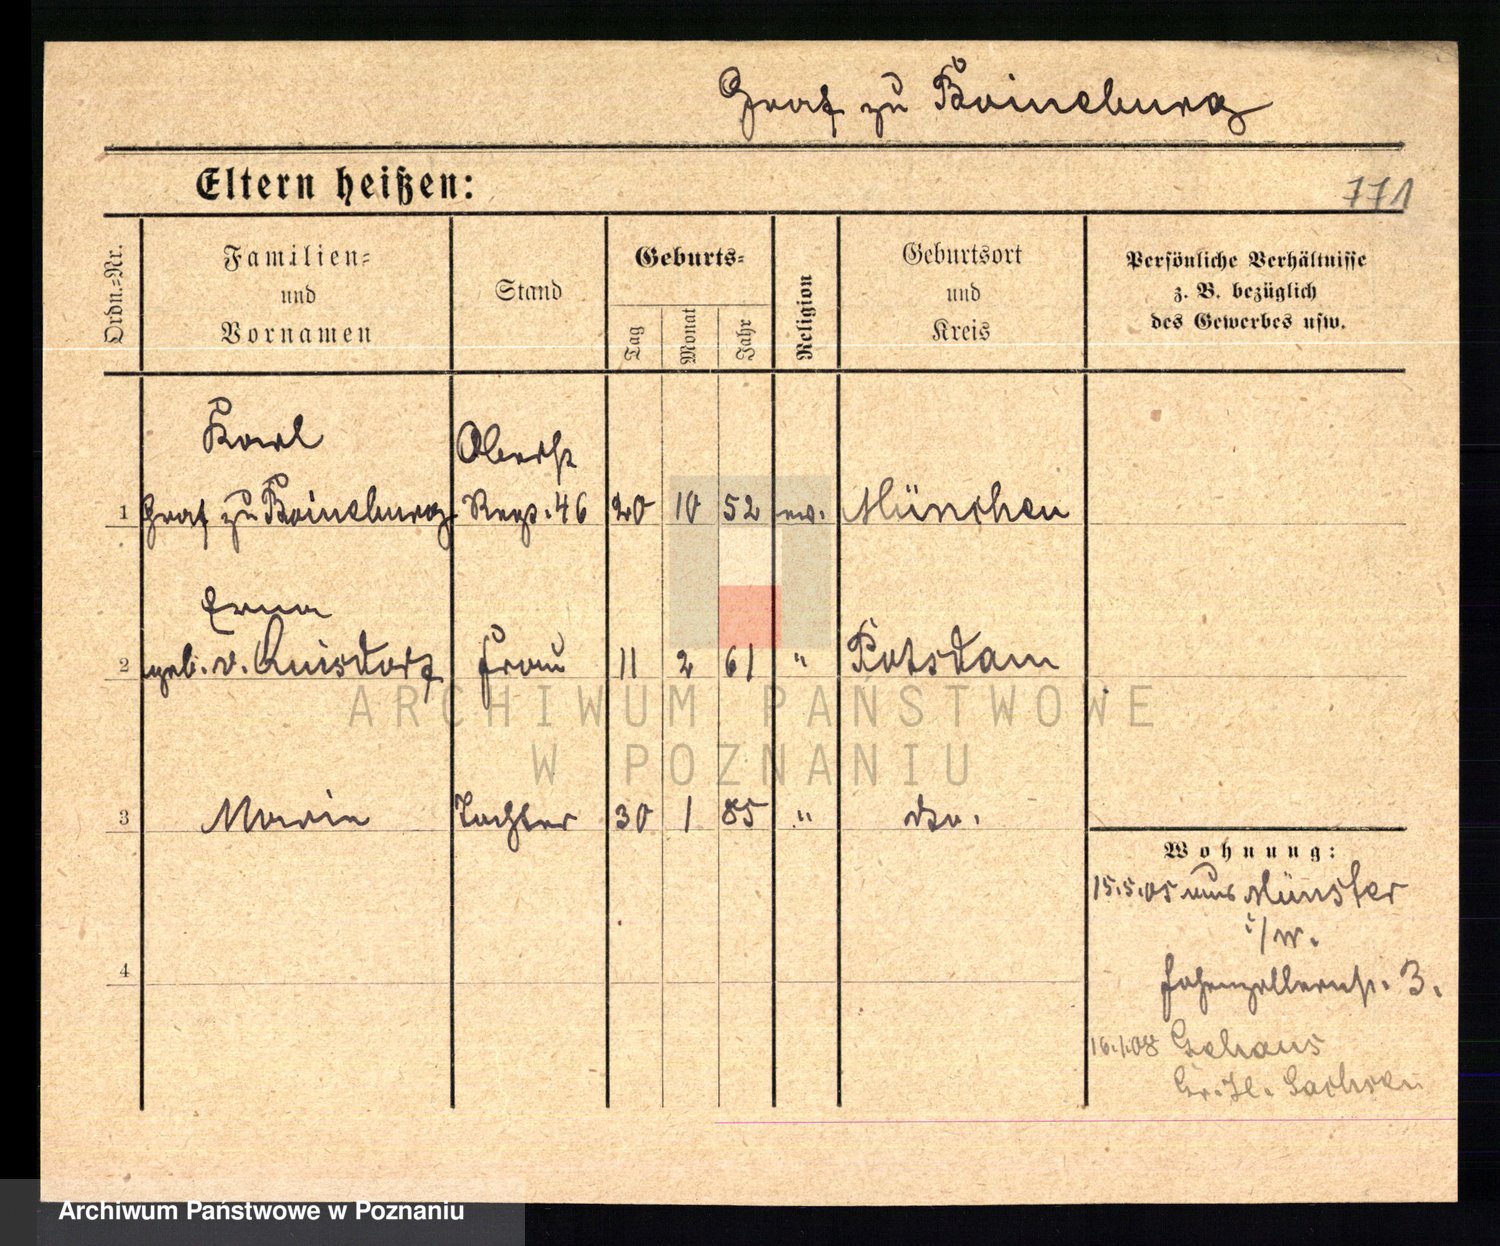 Graf zu Boineburg
Eltern heißen:
771
Ordn.-Nr.
Familien-
und
Vornamen
Stand
Geburts-
Tag
Monat
Jahr
Religion
Geburtsort
und
Kreis
Persönliche Verhältnisse
z. B. bezüglich
des Gewerbes usw.
Karl Oberst
1 Graf zu Boineburg Regt. 46 20 10 52 ev. München
Erna
2 geb. v. Frau 11 2 61 " Potsdam
3 Marie Tochter 30 1 85 " do.
Wohnung:
15.5.05 aus Münster
i/W.
Hohenzollernstr. 3.
4
16.1.08 Gehaus
Gr. H. Sachsen
ARCHIWUM PAŃSTWOWE
W POZNANIU
Archiwum Państwowe w Poznaniu